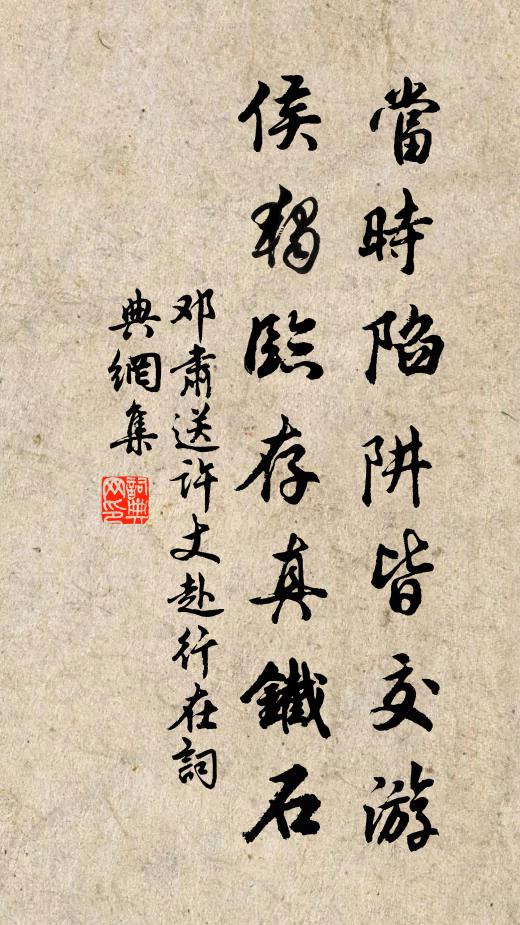 當時陷阱皆交游
侯獨臨存真鐵石
邓肅送许丈赴行在詞
典網集
詞典网印